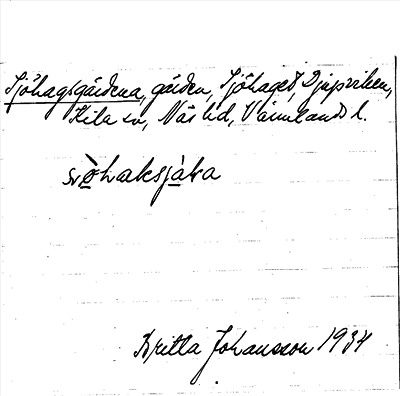 Sjöhagsgärdena, gärden, Sjöhaget, Djupviken,
Kila sn, Näs hd, Värmlands l.
Britta Johansson 1934